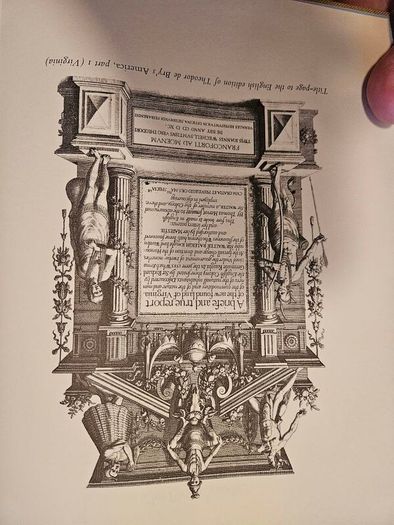 A briefe and true report
of the new found land of Virginia
of the commodities and of the nature and man
ners of the naturall inhabitants. Discouered by
the English Colony there seated by Sir Richard
Greinuile Knight In the yeere 1585. Which Rema
ined Vnder the gouernement of twelue monethes,
At the speciall charge and direction of the Honou
rable SIR WALTER RALEIGH Knight lord Warden
of the stanneries Who therein hath beene fauoured
and authorised by her MAIESTIE
and her letters patents:
This fore booke Is made in English
By Thomas Hariot seruant to the abouenamed
Sir WALTER, a member of the Colony, and there
imployed in discouering
CVM GRATIA ET PRIVILEGIO CAES. MA.TIS
FRANCOFORTI AD MOENVM
TYPIS IOANNIS WECHELI, SVMTIBVS VERO THEODORI
DE BRY ANNO CIƆ IƆ XC.
VENALES REPERIVNTVR IN OFFICINA
Title-page to the English edition of Theodor de Bry's America, part 1 (Virginia)